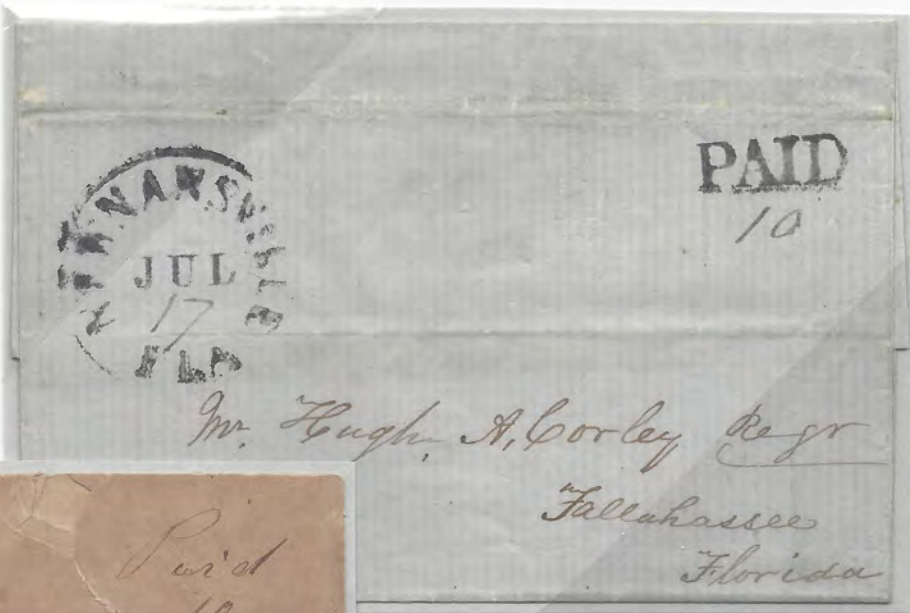 NEWNANSVILLE
JUL
17
FLA
PAID
10
Mr. Hugh. A. Corley Regr
Tallahassee
Florida
Paid
10